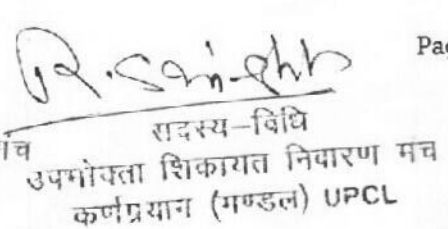 Pag
R. Singh
सदस्य–विधि
च
उपभोक्ता शिकायत निवारण मंच
कर्णप्रयाग (मण्डल) UPCL